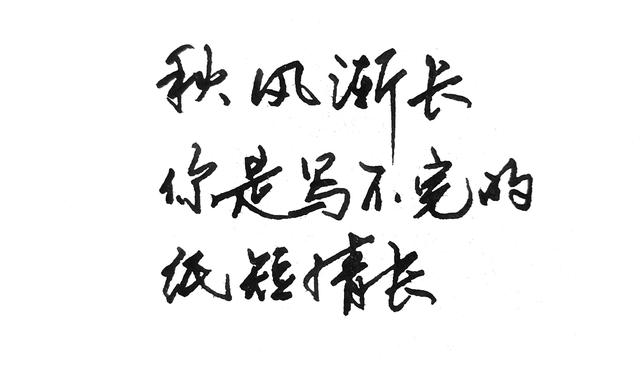 秋风渐长
你是写不完的
纸短情长